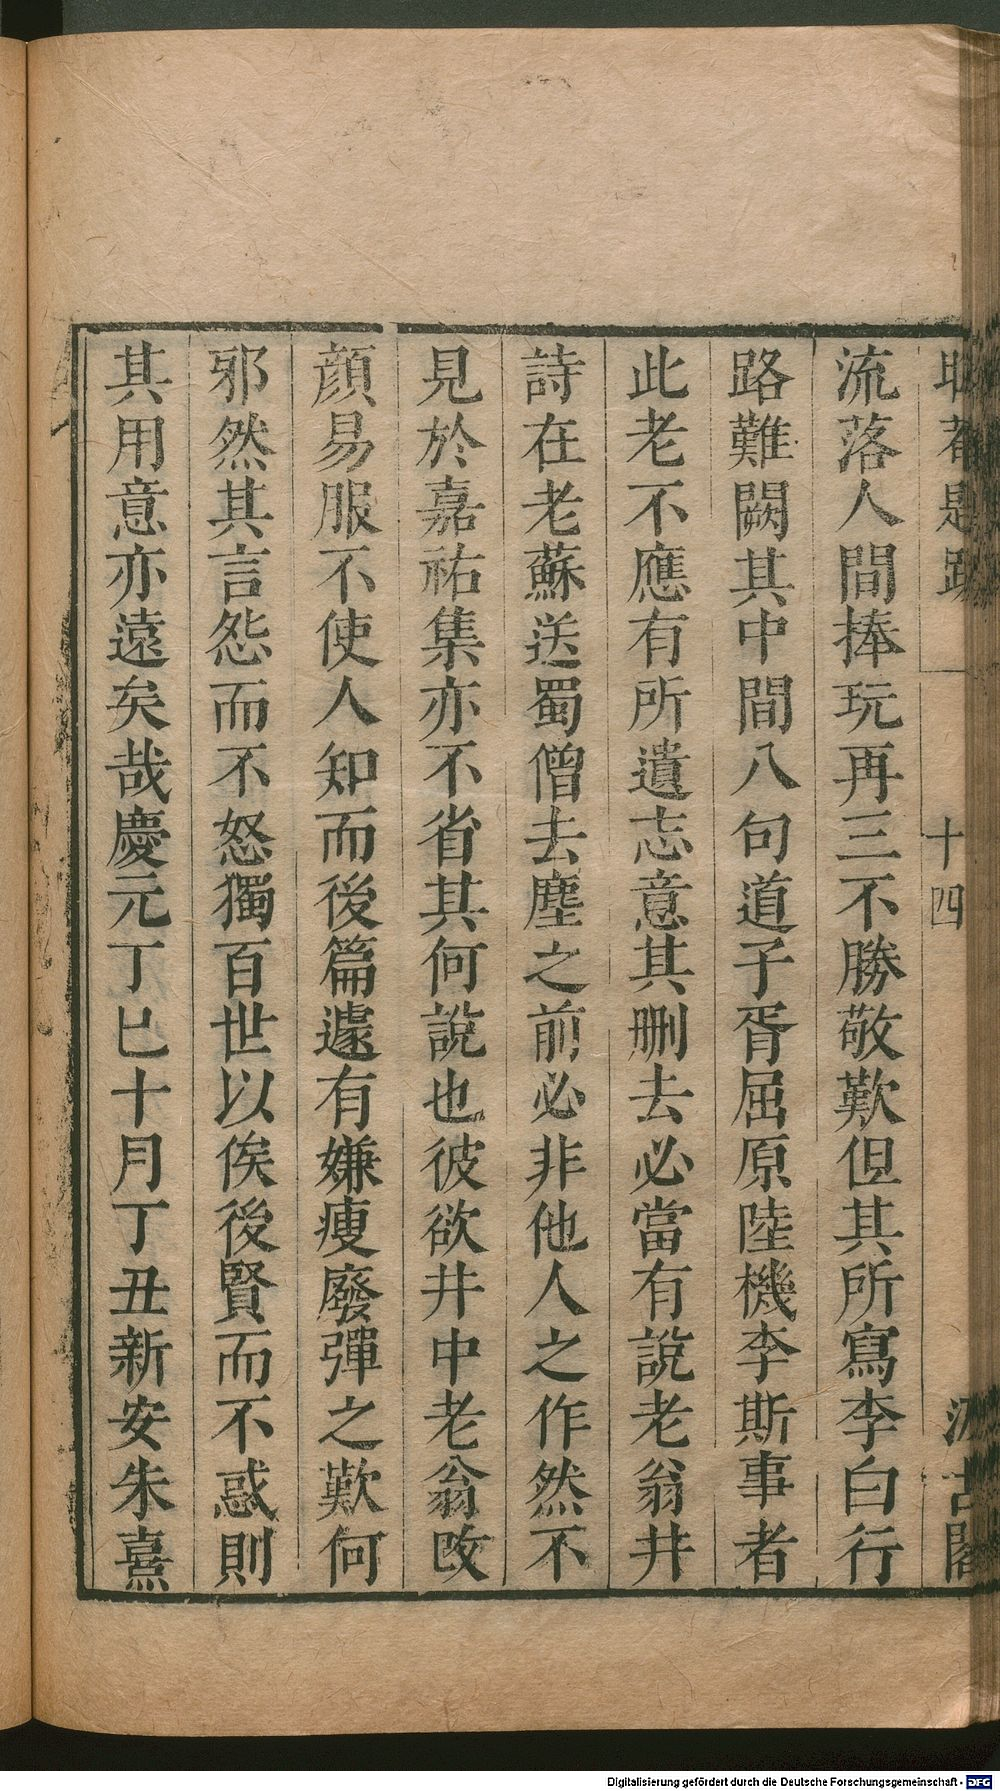 十四
流落人間捧玩再三不勝敬歎但其所寫李白行
路難闕其中間八句道子胥屈原陸機李斯事者
此老不應有所遺忘意其刪去必當有說老翁井
詩在老蘇送蜀僧去塵之前必非他人之作然不
見於嘉祐集亦不省其何說也彼欲井中老翁改
顏易服不使人知而後篇遽有嫌瘦廢彈之歎何
邪然其言怨而不怒獨百世以俟後賢而不惑則
其用意亦遠矣哉慶元丁巳十月丁丑新安朱熹
Digitalisierung gefördert durch die Deutsche Forschungsgemeinschaft - DFG